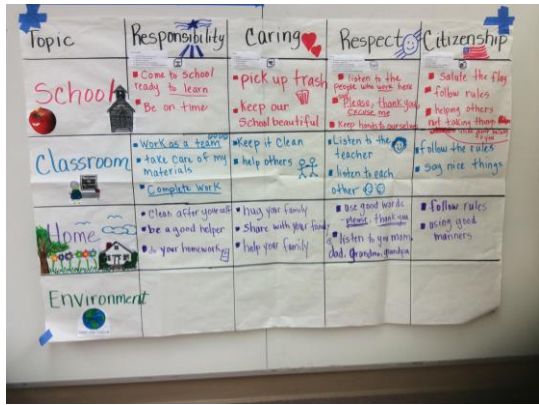 Topic
Responsibility
Caring
Respect
Citizenship
School
Come to school
ready to learn
Be on time
pick up trash
Keep our
school beautiful
listen to the
people who work here
Please, thank you,
excuse me
Keep hands to ourselves
Salute the flag
follow rules
helping others
not taking things
Classroom
Work as a team
take care of my
materials
Complete work
Keep it Clean
help others
Listen to the
teacher
listen to each
other
follow the rules
say nice things
Home
Clean after yourself
be a good helper
do your homework
hug your family
share with your family
help your family
use good words
please, thank you
listen to your mom,
dad, grandma, grandpa
follow rules
using good
manners
Environment